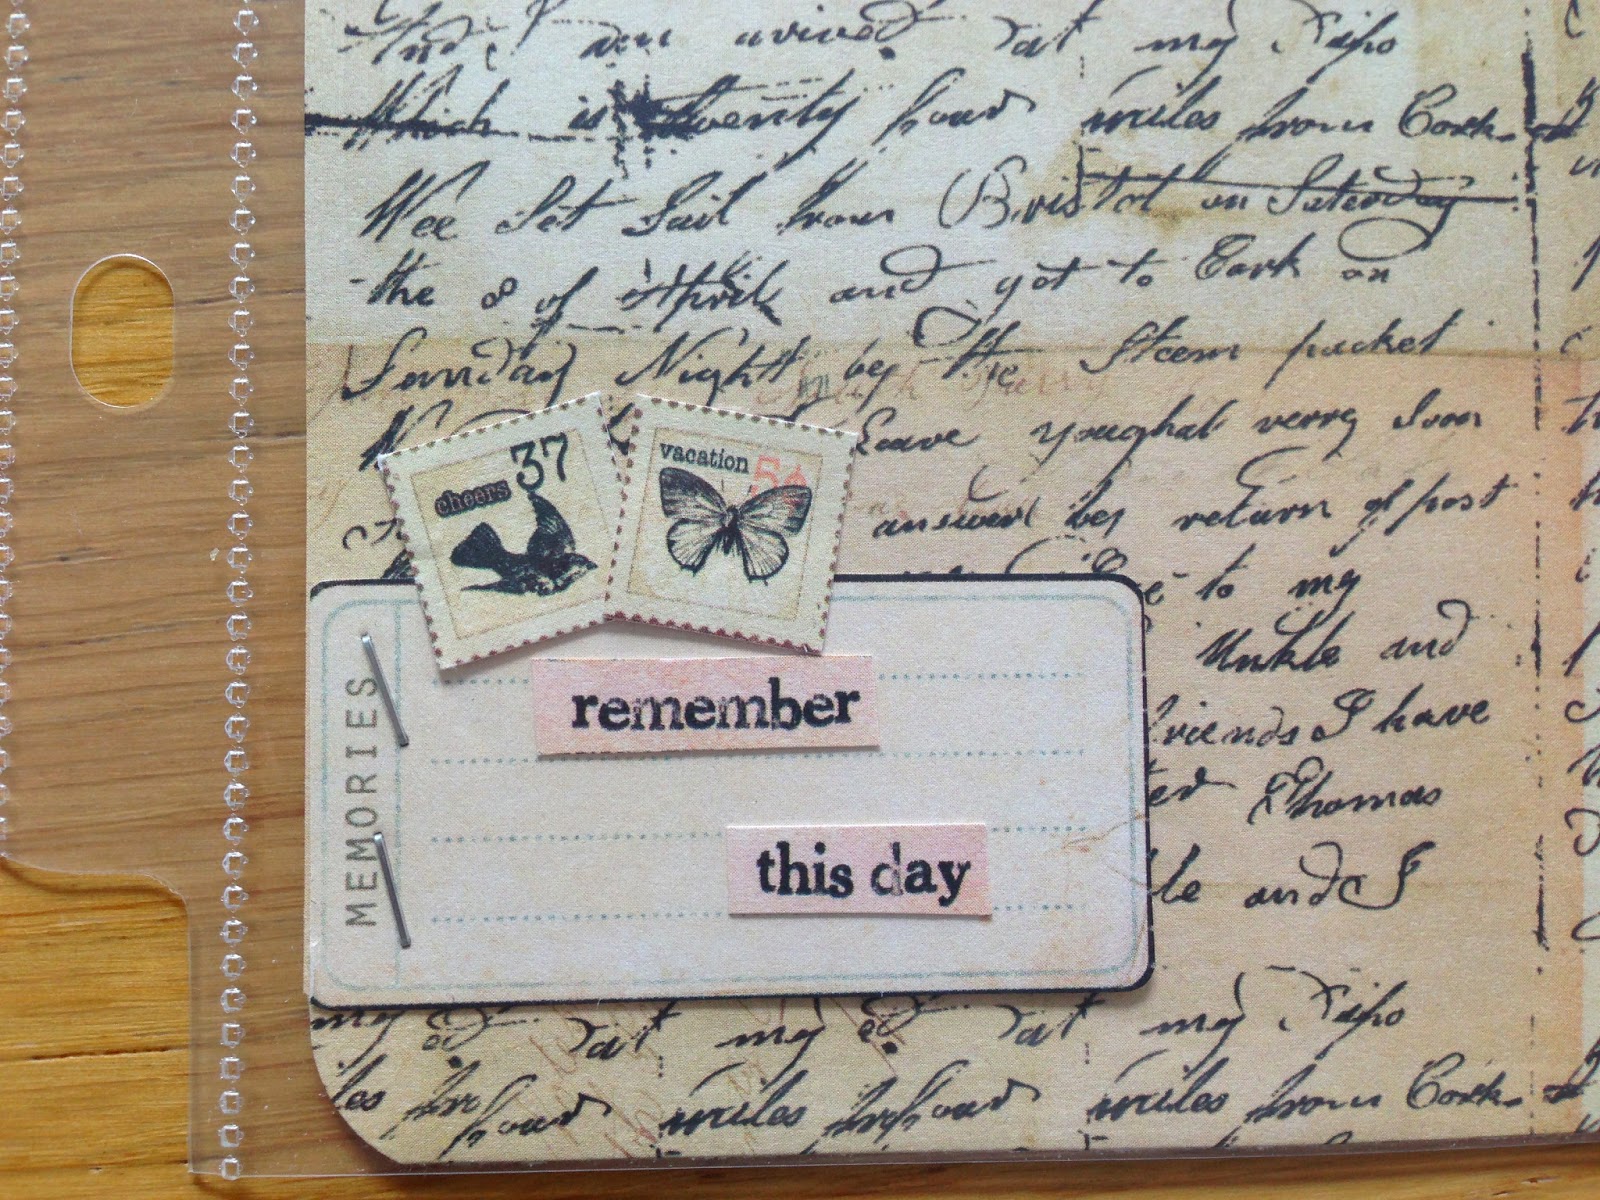 And I am arived at my
Which is twenty four miles from Cork
Wee Set Sail from Bristol on Saterday
the 8 of April and got to Cork on
Sunday Night by the Steem packet
Leave youghal verry Soon
answer by return of post
to my
Unkle and
friends I have
Thomas
and I
cheers 37
vacation 5¢
MEMORIES
remember
this day
my at my
four miles four miles from Cork